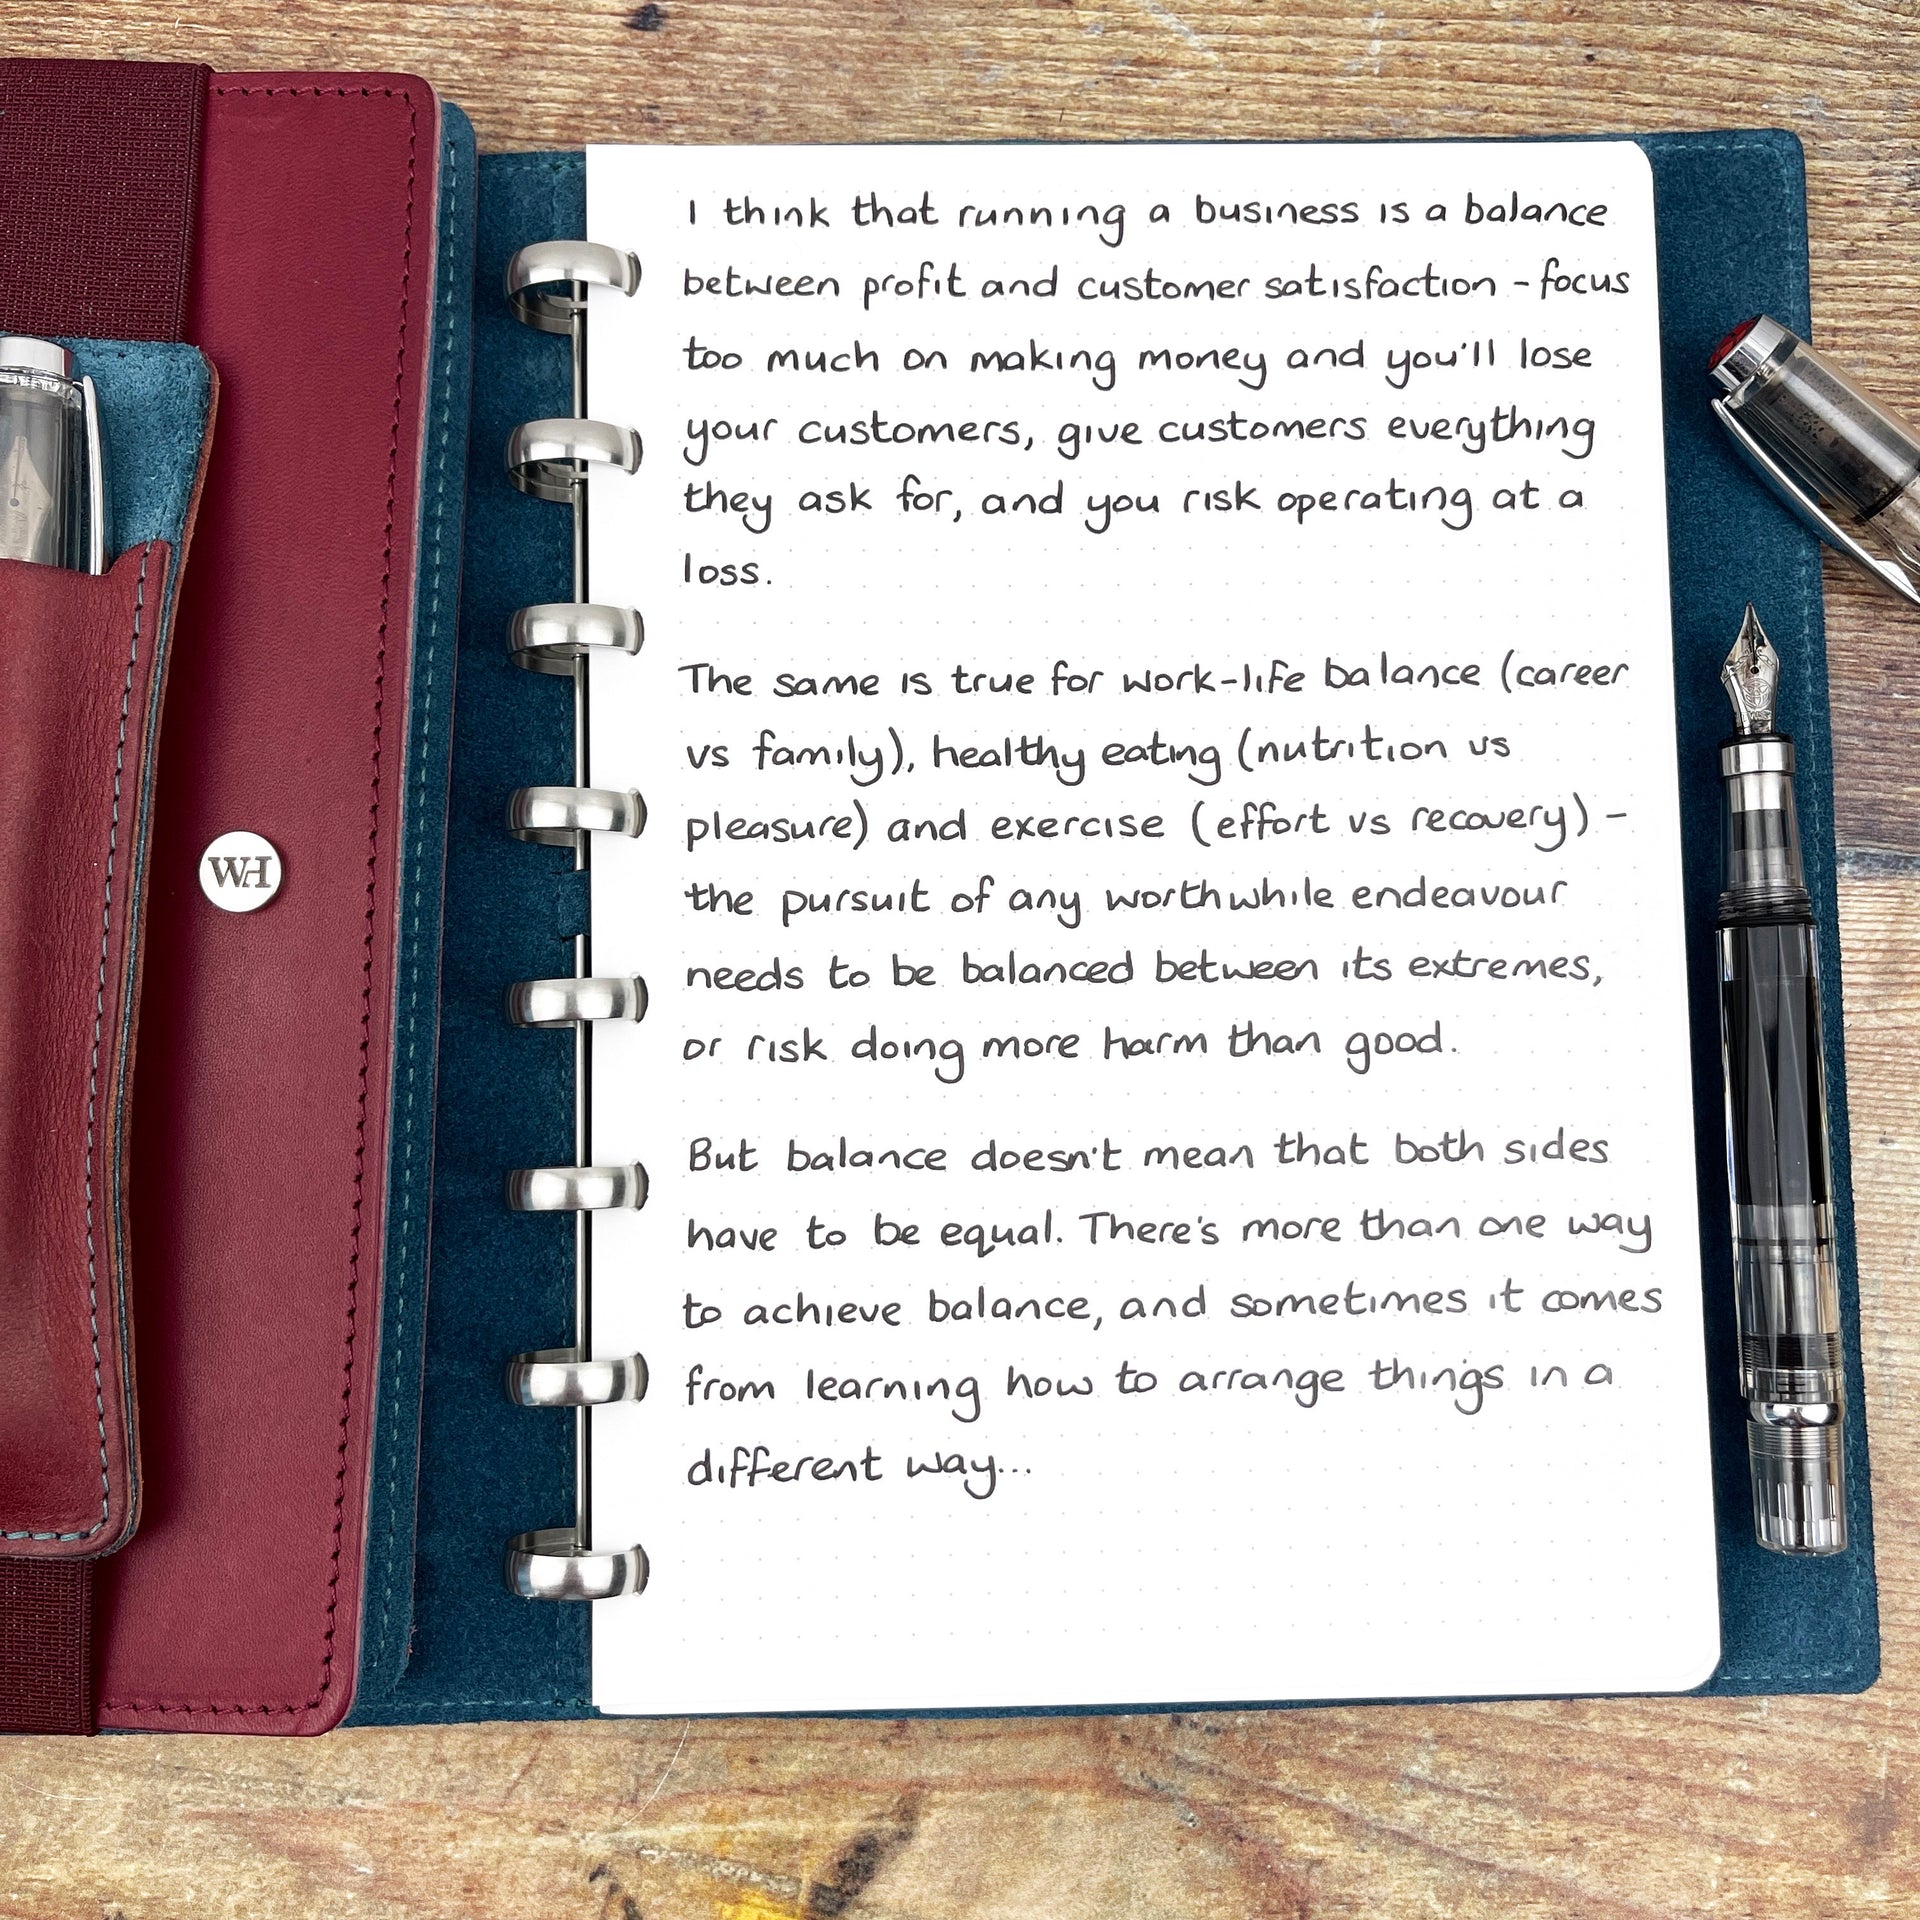 I think that running a business is a balance
between profit and customer satisfaction - focus
too much on making money and you'll lose
your customers, give customers everything
they ask for, and you risk operating at a
loss.
The same is true for work-life balance (career
vs family), healthy eating (nutrition vs
pleasure) and exercise (effort vs recovery) -
the pursuit of any worthwhile endeavour
needs to be balanced between its extremes,
or risk doing more harm than good.
But balance doesn't mean that both sides
have to be equal. There's more than one way
to achieve balance, and sometimes it comes
from learning how to arrange things in a
different way...
WH